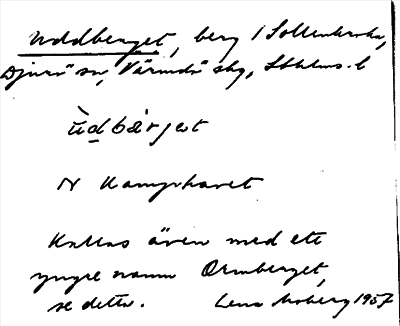 Uddberget, berg i Sollenkroka,
Djurö sn, Värmdö skg, Sthlms. l
ùdbárjet
N Kampehavet
Kallas även med ett
yngre namn Ormberget,
se detta. Lena Moberg 1957